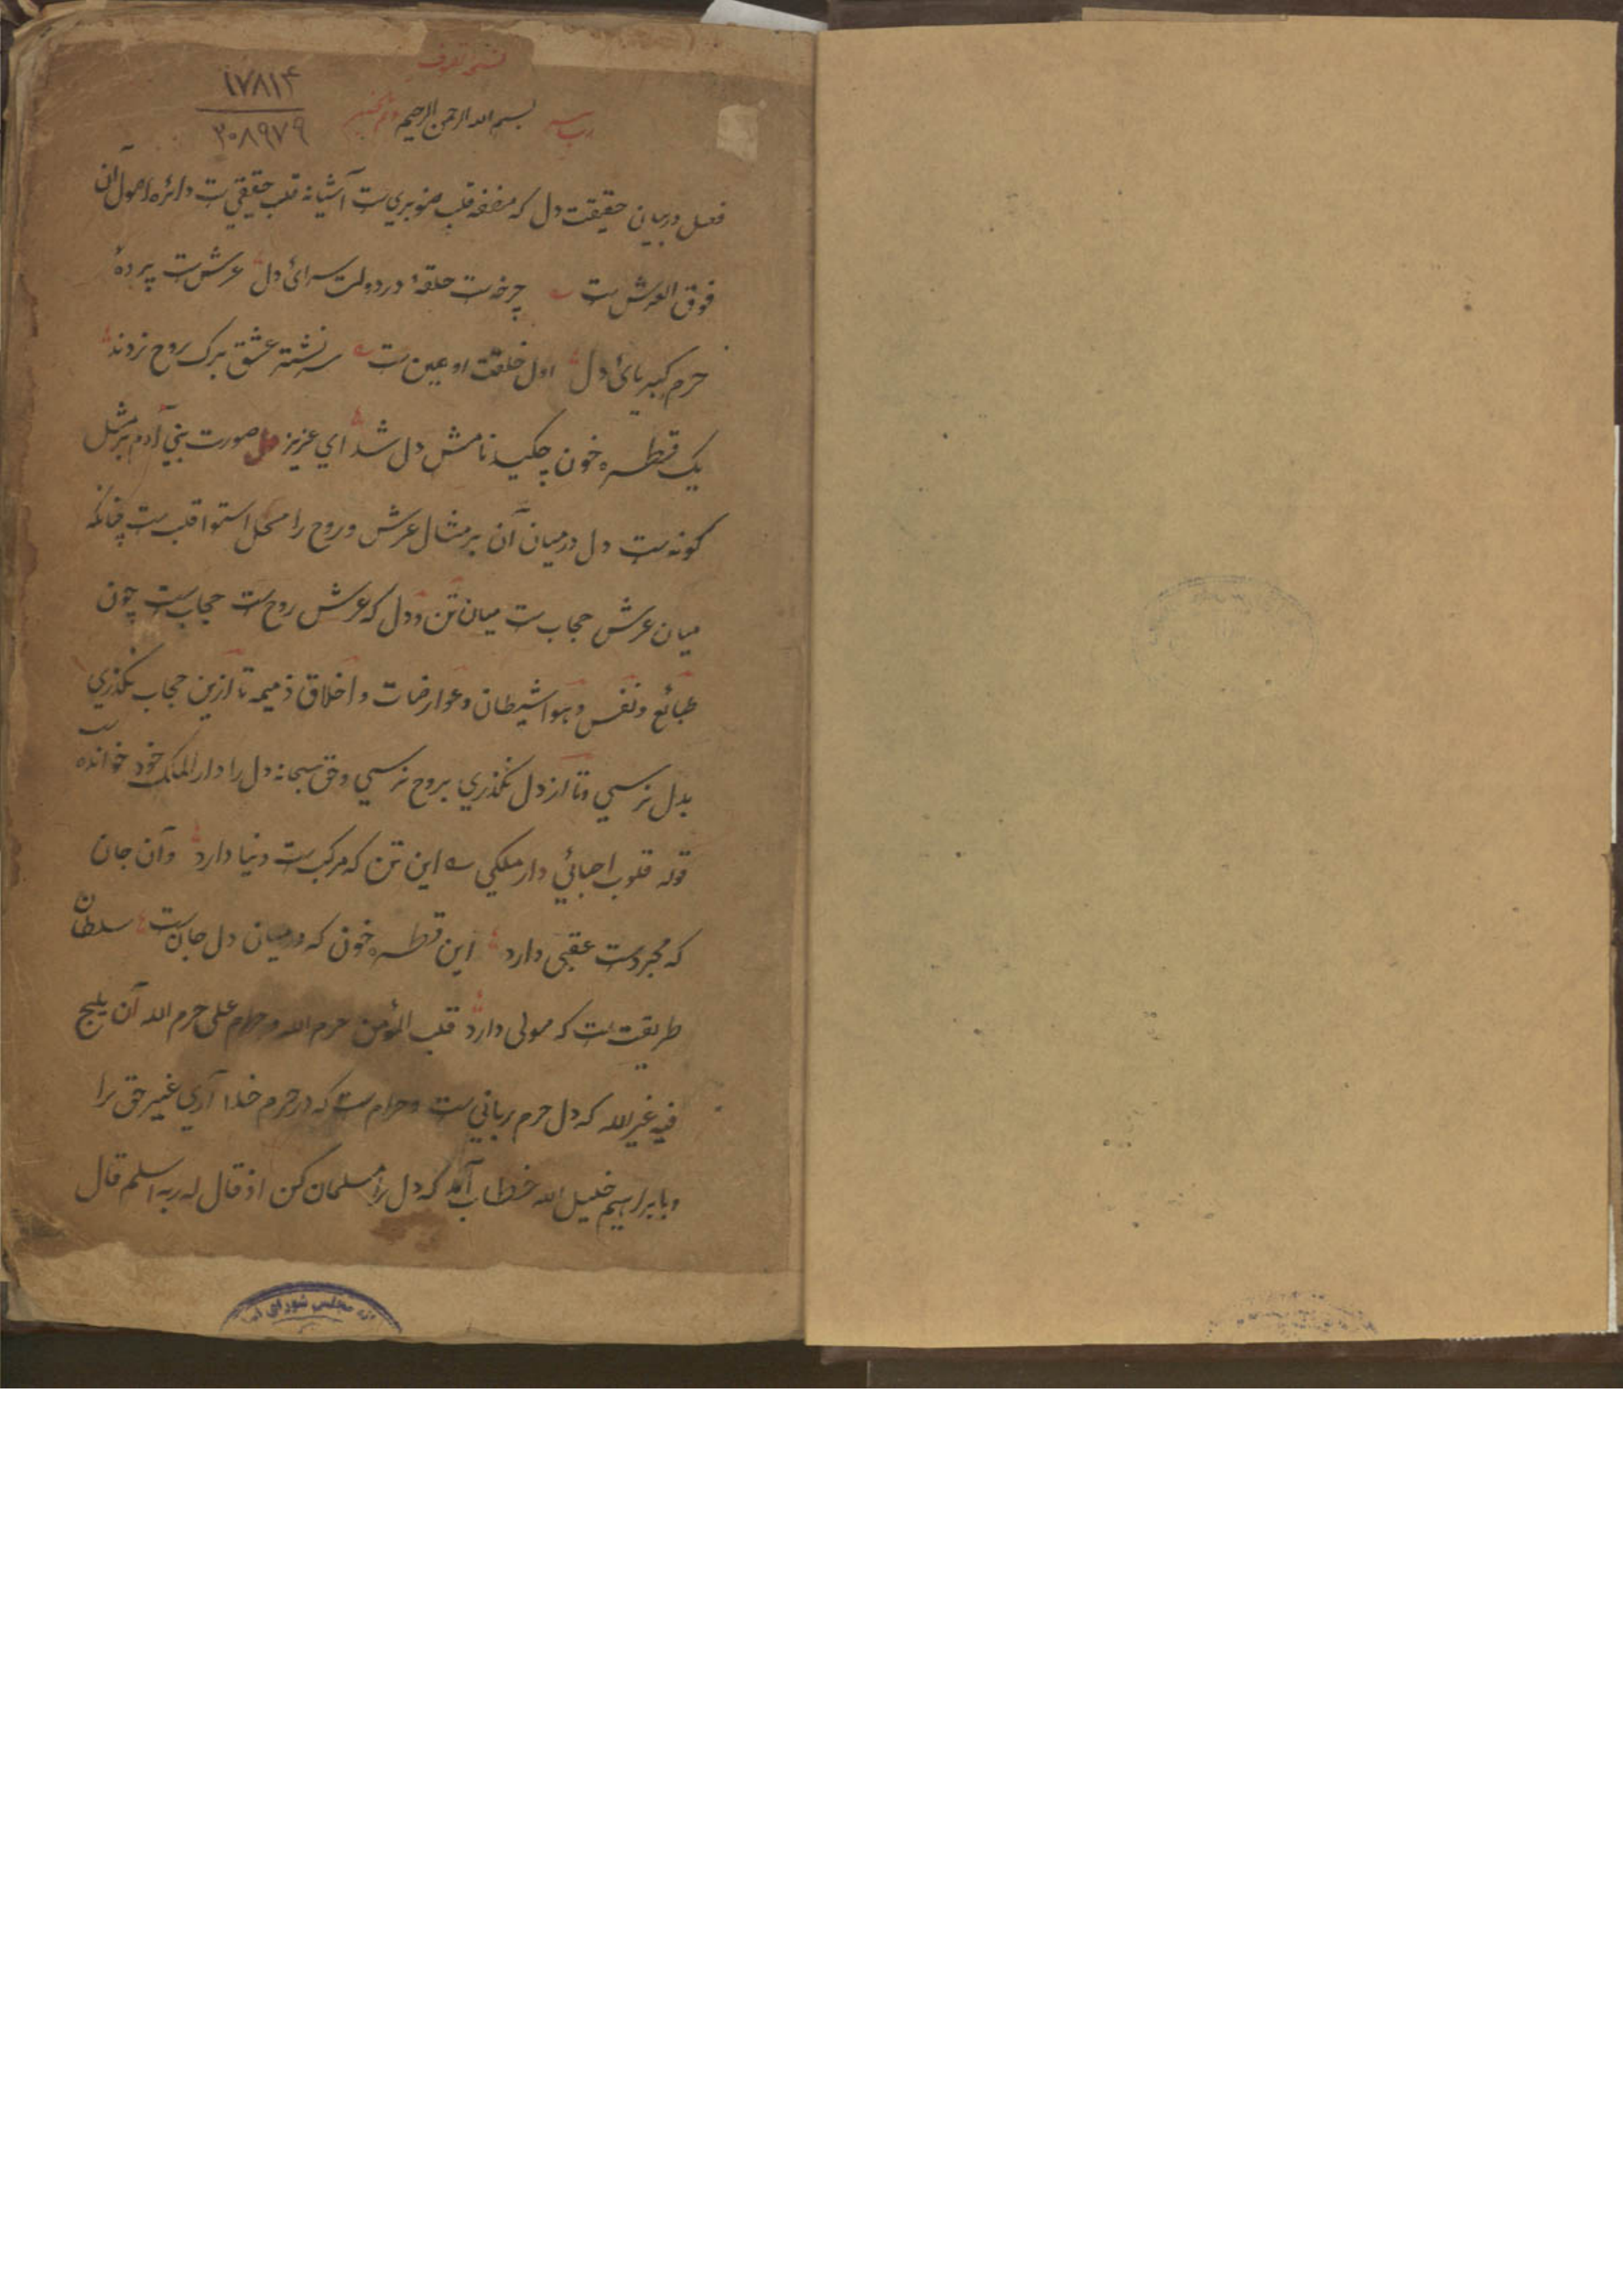 ۱۷۸۱۴
۲۰۸۹۷۹
بسم الله الرحمن الرحیم
فصل در بیان حقیقت دل که مضغه قلب صنوبری ست آشیانه قلب حقیقی ست دائره اصول آن
فوق العرش ست چرخ ست حلقهٔ در دولت سرائ دل عرش ست پردهٔ
حرم کبریائ دل اول خلقت او عین ست سر نشتر عشق بر رک روح زدند
یک قطره خون چکید نامش دل شد ای عزیز صورت بنی آدم بر مثل
کونه ست دل در میان آن بر مثال عرش و روح را محل استوا قلب ست چنانکه
میان عرش حجاب ست میان تن و دل که عرش روح ست حجاب ست چون
طبائع و نفس و هوا شیطان و عوارضات و اخلاق ذمیمه تا ازین حجاب نکذری
بدل نرسی و تا از دل نکذری بروح نرسی و حق سبحانه دل را دار الملک خود خوانده است
قوله قلوب احبائی دار ملکی این تن که مرکب ست دنیا دارد و آن جان
که مجرد ست عقبی دارد این قطره خون که در میان دل جان ست سلطان
طریقت ست که مولی دارد قلب المؤمن حرم الله و حرام علی حرم الله آن یلج
فیه غیر الله که دل حرم ربانی ست و حرام ست که در حرم خدا آری غیر حق را
و بابراهیم خلیل الله خطاب آمد که دل را مسلمان کن اذ قال له ربه اسلم قال
مجلس شورای